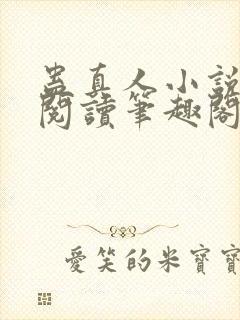 蛊真人小說
閱讀筆趣閣
愛笑的米寶寶